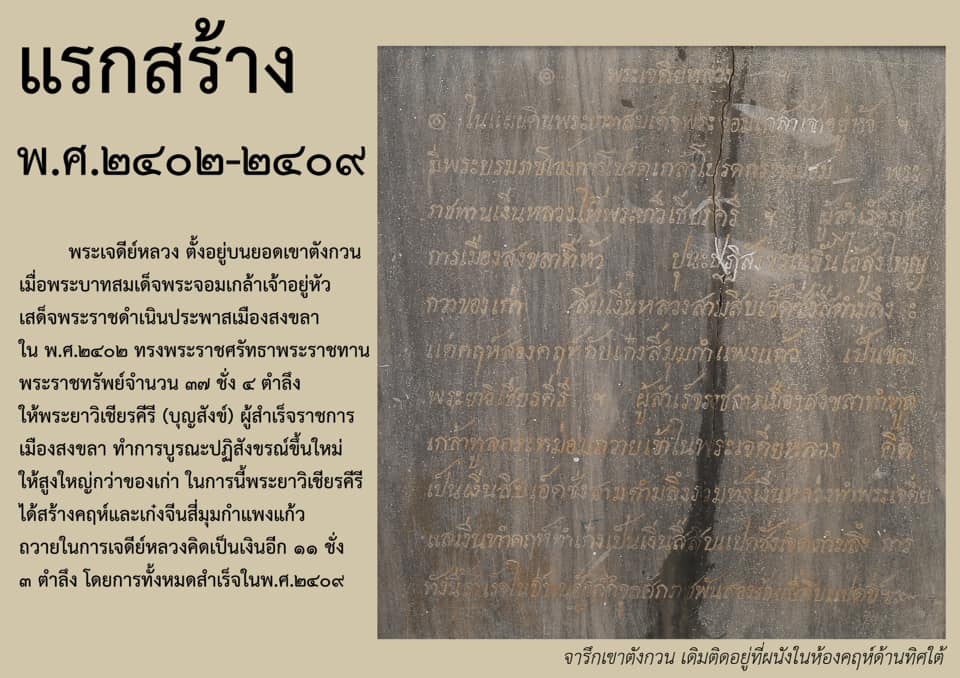 แรกสร้าง
พ.ศ.๒๔๐๒-๒๔๐๙
พระเจดีย์หลวง ตั้งอยู่บนยอดเขาตังกวน
เมื่อพระบาทสมเด็จพระจอมเกล้าเจ้าอยู่หัว
เสด็จพระราชดำเนินประพาสเมืองสงขลา
ใน พ.ศ.๒๔๐๒ ทรงพระราชศรัทธาพระราชทาน
พระราชทรัพย์จำนวน ๓๗ ชั่ง ๔ ตำลึง
ให้พระยาวิเชียรคีรี (บุญสังข์) ผู้สำเร็จราชการ
เมืองสงขลา ทำการบูรณะปฏิสังขรณ์ขึ้นใหม่
ให้สูงใหญ่กว่าของเก่า ในการนี้พระยาวิเชียรคีรี
ได้สร้างคฤห์และเก๋งจีนสี่มุมกำแพงแก้ว
ถวายในการเจดีย์หลวงคิดเป็นเงินอีก ๑๑ ชั่ง
๓ ตำลึง โดยการทั้งหมดสำเร็จในพ.ศ.๒๔๐๙
๏ พระเจดียหลวง
๏ ในแผ่นดินพระบาทสมเดจ์พระจอมเกล้าเจ้าอยู่หัว ฯ
มีพระบรมราชโองการโปรดเกล้าโปรด พระ
ราชทานเงินหลวงให้พระยาวิเชียรคิรี ฯ ผู้สำเรจ์ราช
การเมืองสงขลา ปฏิสังขรณขึ้นไว้สูงใหญ่
กว่าของเก่า สิ้นเงินหลวงสามสิบเจดชั่งสี่ตำลึง ะ
แต่คฤห์สองคฤห์กับเก๋งสี่มุมกำแพงแก้ว เป็นของ
พระยาวิเชียรคิรี ฯ ผู้สำเรจ์ราชการเมืองสงขลาทำทูล
เกล้าทูลกระหม่อมถวายเข้าในพระเจดียหลวง คิด
เป็นเงินสิบเอดชั่งสามตำลึงรวมทั้งเงินหลวงทำพระเจดีย
แลเงินทำคฤห์ทำเก๋งเป็นเงินสี่สิบแปดชั่งเจดตำลึง การ
ทั้งนี้
จารึกเขาตังกวน เดิมติดอยู่ที่ผนังในห้องคฤห์ด้านทิศใต้